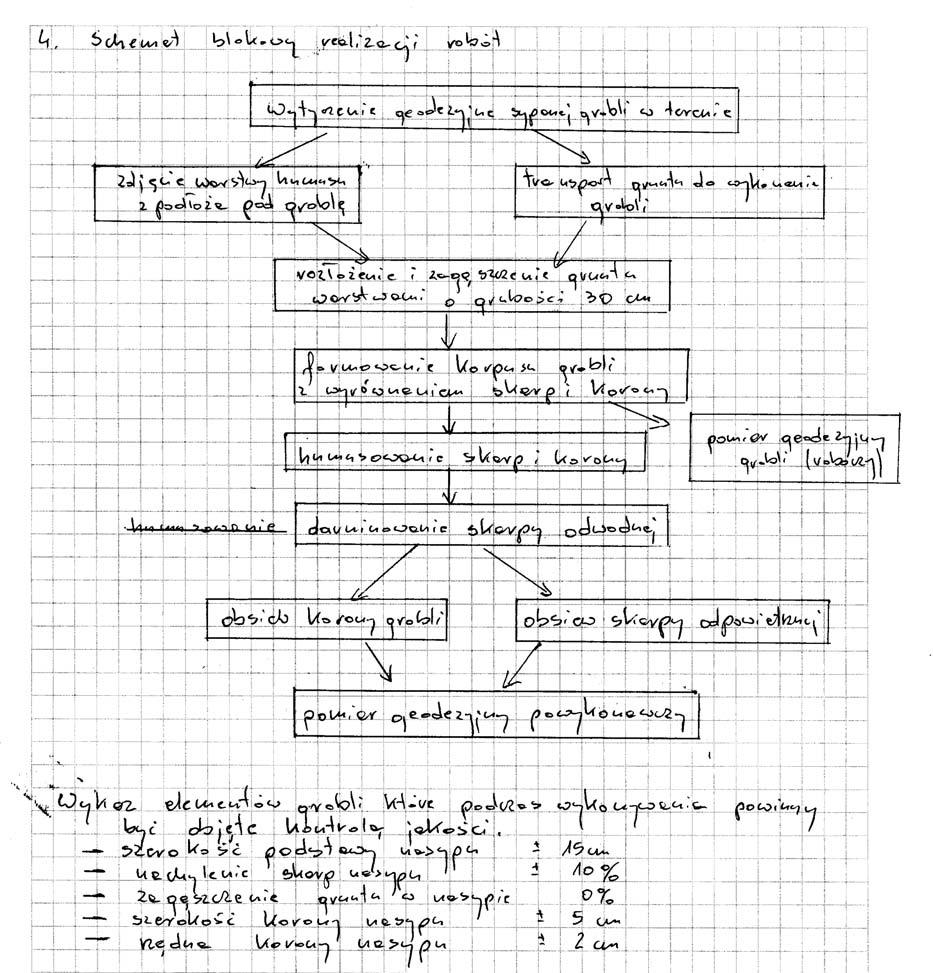 4. Schemat blokowy realizacji robót
wytyczenie geodezyjne sypanej grobli w terenie
zdjęcie warstwy humusu
z podłoża pod groblę
transport gruntu do wykonania
grobli
rozłożenie i zagęszczenie gruntu
warstwami o grubości 30 cm
formowanie korpusu grobli
z wyrównaniem skarp i korony
pomiar geodezyjny
grobli (roboczy)
humusowanie skarp i korony
humusowanie darniowanie skarpy odwodnej
obsiew korony grobli
obsiew skarpy odpowietrznej
pomiar geodezyjny powykonawczy
Wykaz elementów grobli które podczas wykonywania powinny
być objęte kontrolą jakości.
— szerokość podstawy nasypu ± 15 cm
— nachylenie skarp nasypu ± 10 %
— zagęszczenie gruntu w nasypie 0%
— szerokość korony nasypu ± 5 cm
— rzędna korony nasypu ± 2 cm